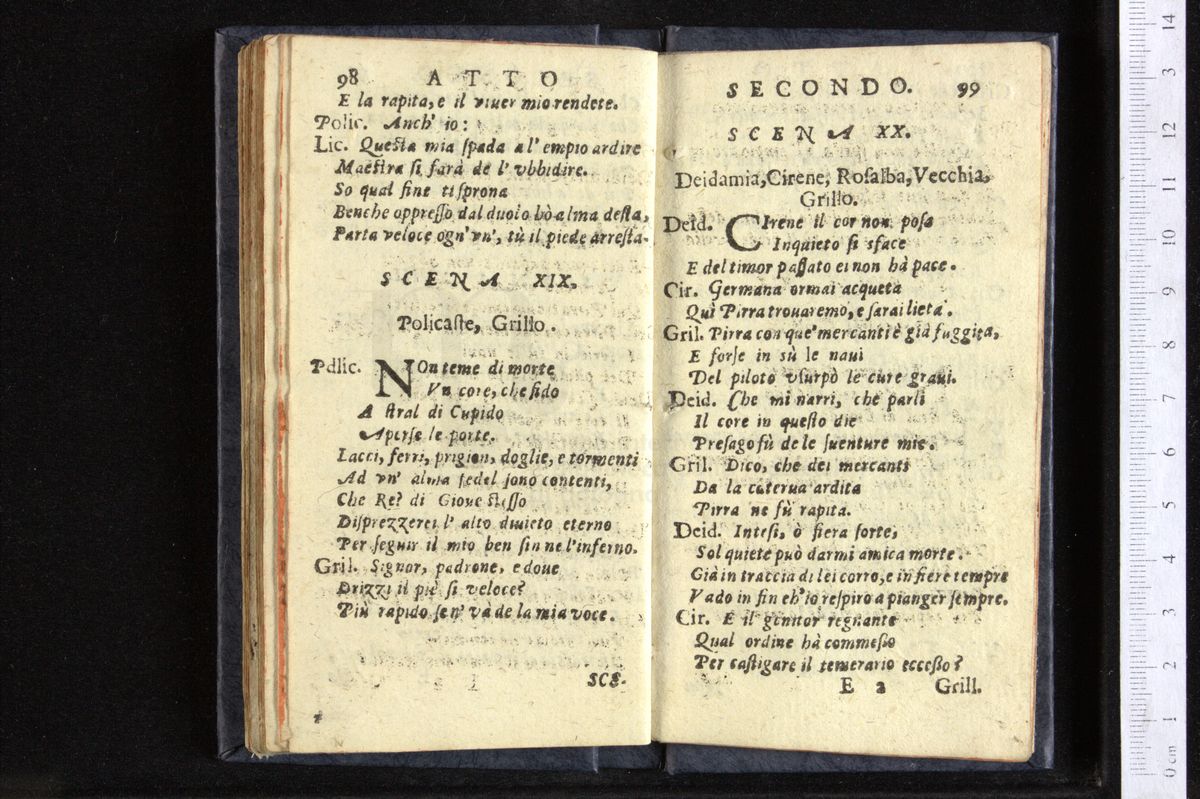 98 ATTO
E la rapita, e il viuer mio rendete.
Polic. Anch' io:
Lic. Questa mia spada a l' empio ardire
Maestra si farà de l' vbbidire.
So qual fine ti sprona
Benche oppresso dal duolo hò alma desta,
Parta veloce ogn' vn', tù il piede arresta.
SCENA XIX.
Policaste, Grillo.
Pdlic. NOn teme di morte
Vn core, che fido
A stral di Cupido
Aperse le porte.
Lacci, ferri, prigion, doglie, e tormenti
Ad vn' alma fedel sono contenti,
Che Re? di Gioue stesso
Disprezzerei l' alto diuieto eterno
Per seguir il mio ben fin ne l'inferno.
Gril. Signor, padrone, e doue
Drizzi il piè si veloce?
Più rapido sen' và de la mia voce.
SCE-
SECONDO. 99
SCENA XX.
Deidamia, Cirene, Rosalba, Vecchia,
Grillo.
Deid. CIrene il cor non posa
Inquieto si sface
E del timor passato ei non hà pace.
Cir. Germana ormai acqueta
Quì Pirra trouaremo, e sarai lieta.
Gril. Pirra con que' mercanti è già fuggita,
E forse in sù le naui
Del piloto vsurpò le cure graui.
Deid. Che mi narri, che parli
Il core in questo die
Presago fù de le suenture mie.
Gril. Dico, che dei mercanti
Da la caterua ardita
Pirra ne fù rapita.
Deid. Intesi, ò fiera sorte,
Sol quiete può darmi amica morte.
Già in traccia di lei corro, e in fiere tempre
Vado in fin ch' io respiro a pianger sempre.
Cir. E il genitor regnante
Qual ordine hà commesso
Per castigare il temerario eccesso?
E 2 Grill.
14
3
12
11
10
9
8
7
6
5
4
3
2
1
0 cm